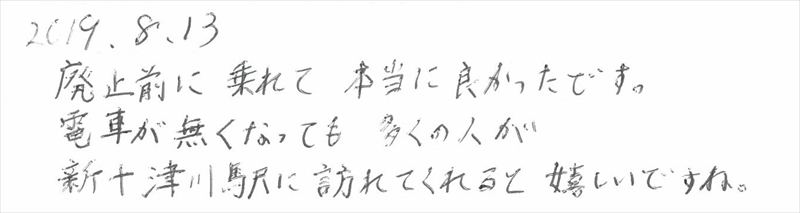 2019.8.13
廃止前に乗れて 本当に良かったです。
電車が無くなっても 多くの人が
新十津川駅に訪れてくれると嬉しいですね。